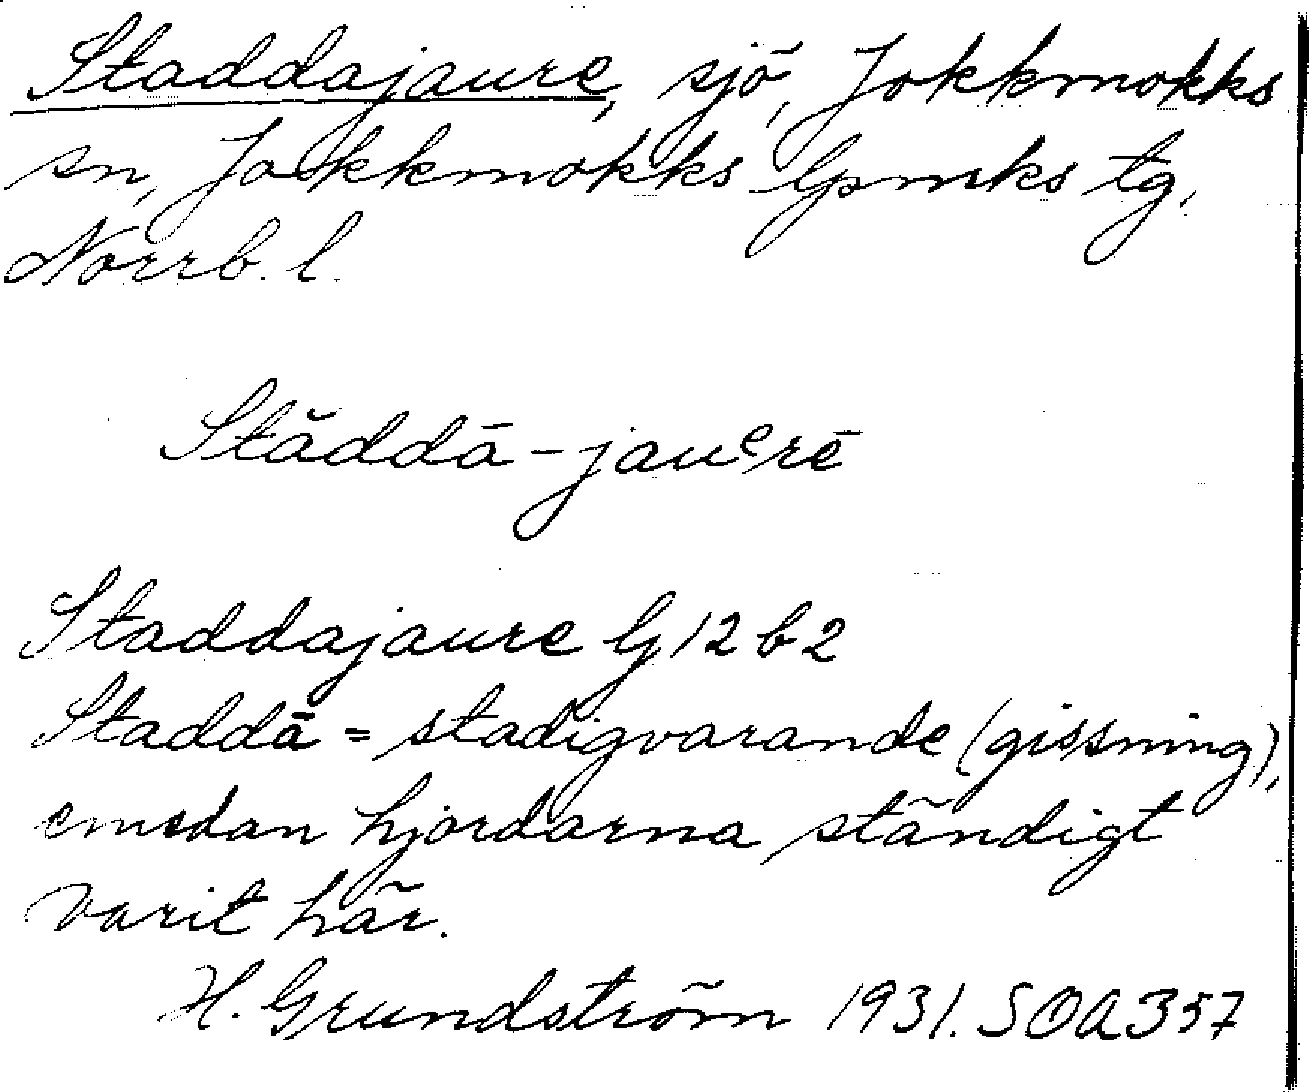 Staddajaure, sjö, Jokkmokks
sn, Jokkmokks lpmrks tg,
Norrb. l.
Stăddā-jauᵉrē
Staddajaure lj 12 b 2
Staddā = stadigvarande (gissning),
emedan hjordarna ständigt
varit här.
H. Grundström 1931. SOA 357